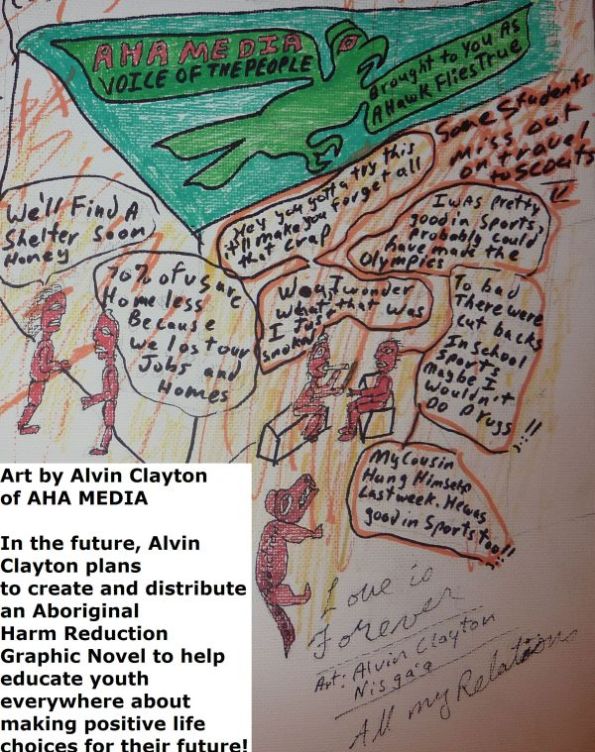 AHA MEDIA
VOICE OF THE PEOPLE
Brought to You As
A Hawk Flies True
Some Students
miss out
on travel
to Scouts
We'll Find A
Shelter soon
Honey
70% of us are
Homeless
Because
we lost our
Jobs and
Homes
Hey you gotta try this
it'll make you forget all
that crap
I was pretty
good in Sports,
Probably could
have made the
Olympics
wonder
what that was
I Just
smoked
To bad
There were
cut backs
In school
Sports
maybe I
wouldn't
Do Drugs !!
My Cousin
Hung Himself
Last week. He was
good in Sports too!!
Love is
Forever
Art: Alvin Clayton
Nisga'a
All my Relations
Art by Alvin Clayton
of AHA MEDIA
In the future, Alvin
Clayton plans
to create and distribute
an Aboriginal
Harm Reduction
Graphic Novel to help
educate youth
everywhere about
making positive life
choices for their future!